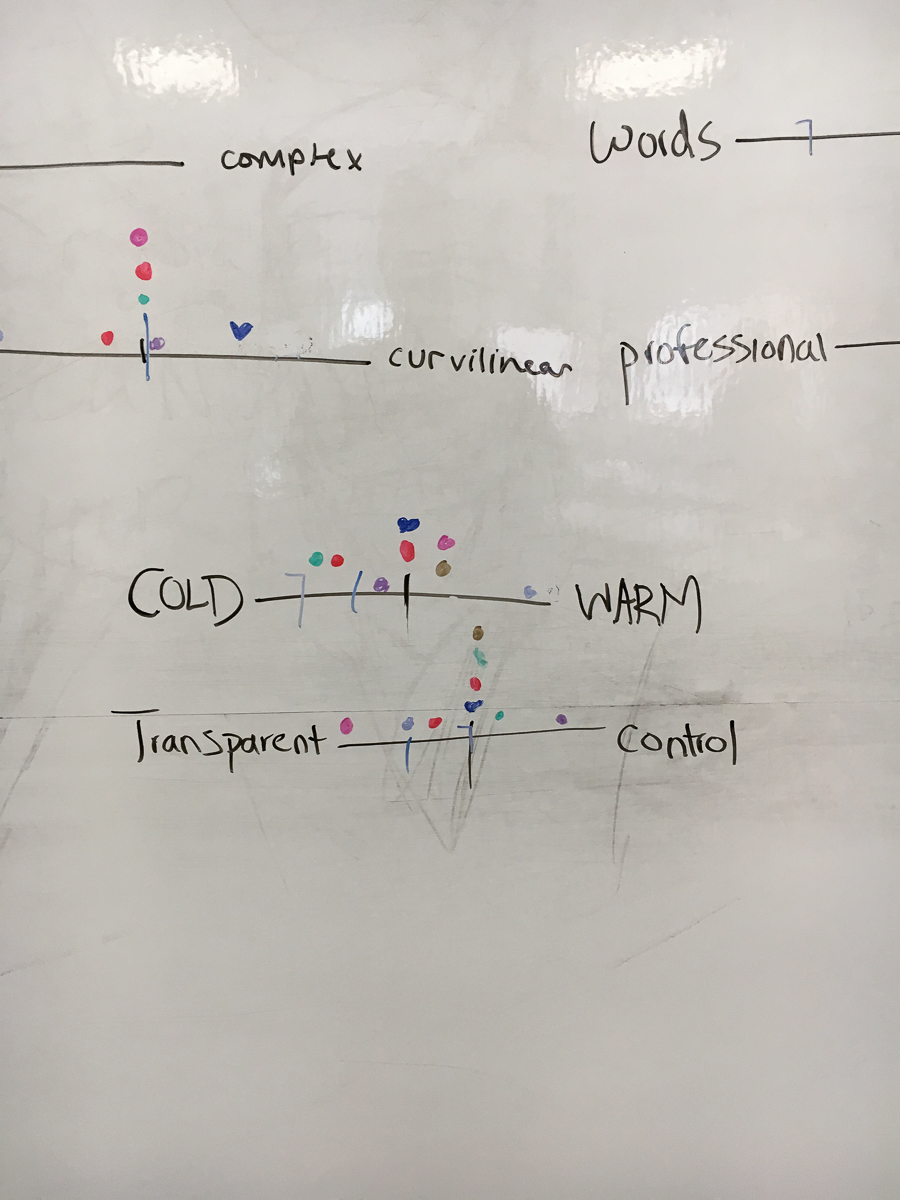 complex
Words
curvilinear
professional
COLD WARM
Transparent Control